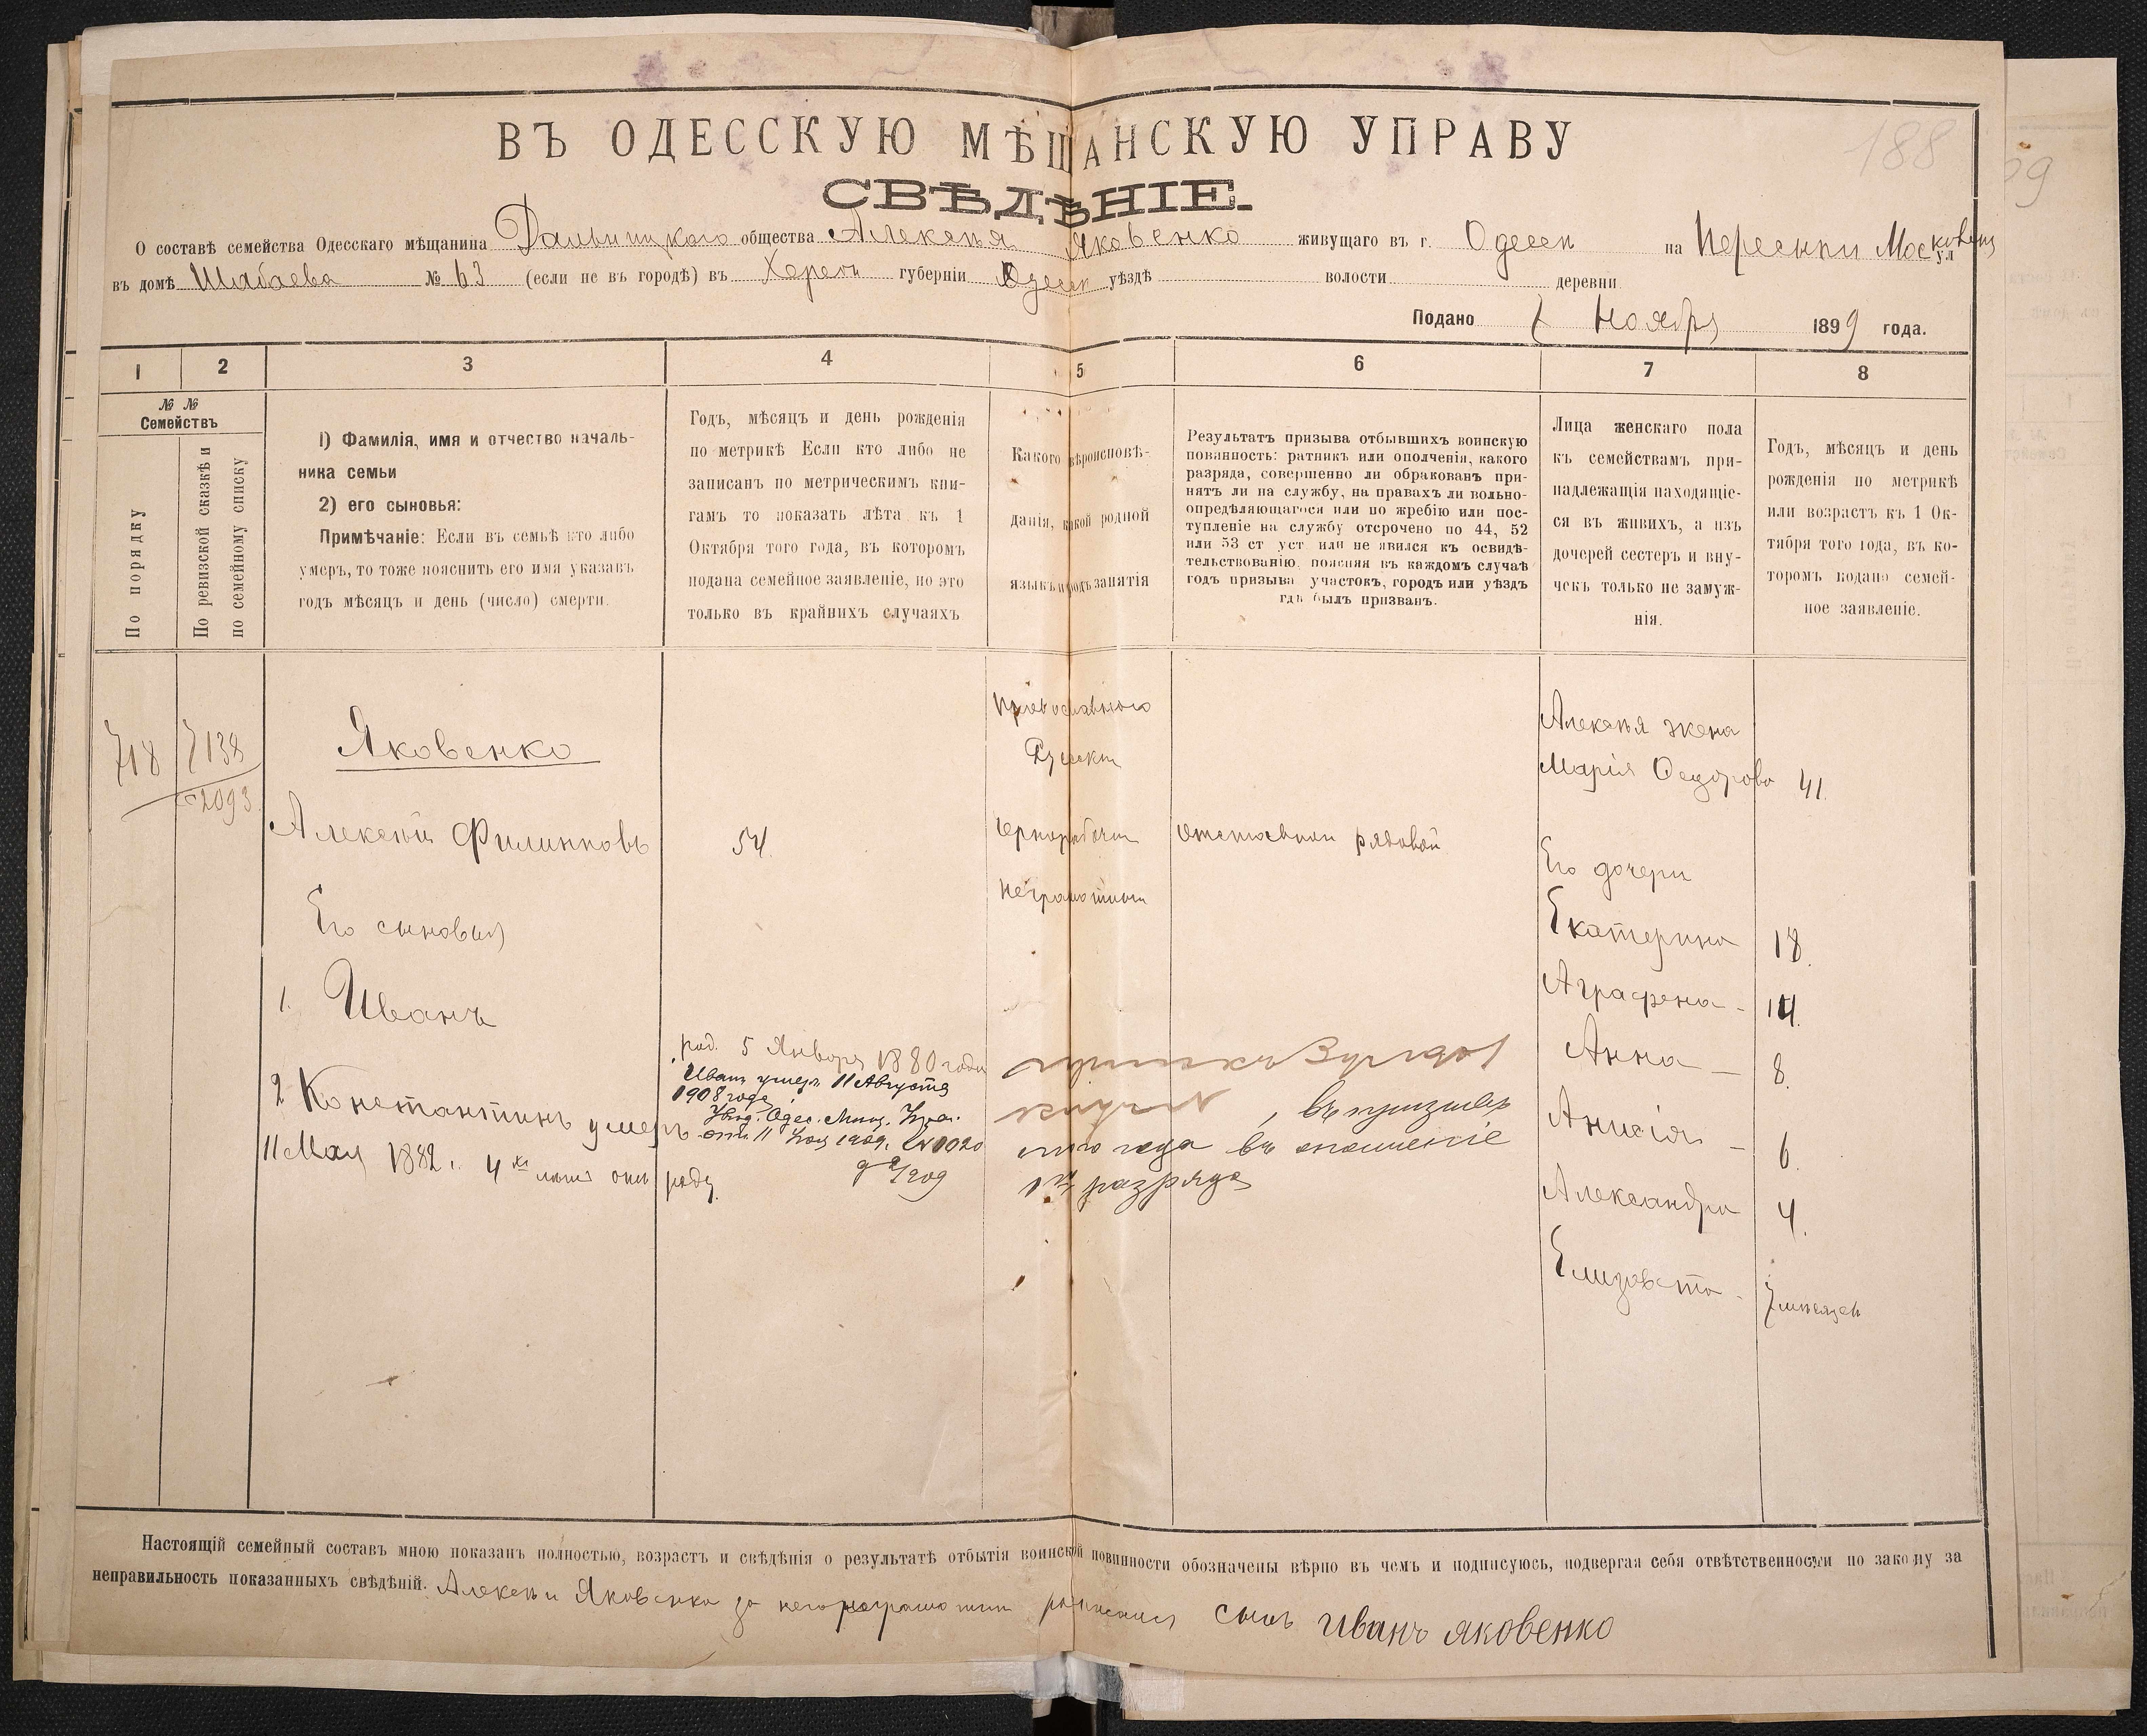 188
ВЪ ОДЕССКУЮ МѢЩАНСКУЮ УПРАВУ
СВѢДѢНІЕ.
О составѣ семейства Одесскаго мѣщанина Дальницкаго общества Алексѣя Яковенко живущаго въ г. Одессѣ на Пересыпи Московск ул
въ домѣ Шабаева № 63 (если не въ городѣ) въ Херсон губерніи Одесск уѣздѣ волости деревни
Подано 7 Ноября 1899 года.
1 2 3 4 5 6 7 8
№ №
Семействъ
По порядку
По ревизской сказкѣ и
по семейному списку
1) Фамилія, имя и отчество началь-
ника семьи
2) его сыновья:
Примѣчаніе: Если въ семьѣ кто либо
умеръ, то тоже пояснить его имя указавъ
годъ мѣсяцъ и день (число) смерти.
Годъ, мѣсяцъ и день рожденія
по метрикѣ Если кто либо не
записанъ по метрическимъ кни-
гамъ то показать лѣта къ 1
Октября того года, въ которомъ
подана семейное заявленіе, но это
только въ крайнихъ случаяхъ
Какого вѣроисповѣ-
данія, какой родной
языкъ и родъ занятія
Результатъ призыва отбывшихъ воинскую
повинность: ратникъ или ополченія, какого
разряда, совершенно ли обракованъ при-
нятъ ли на службу, на правахъ ли вольно-
опредѣляющагося или по жребію или пос-
тупленіе на службу отсрочено по 44, 52
или 53 ст уст или не явился къ освидѣ-
тельствованію, поясняя въ каждомъ случаѣ
годъ призыва участокъ, городъ или уѣздъ
гдѣ былъ призванъ.
Лица женскаго пола
къ семействамъ при-
надлежащія находящіе-
ся въ живихъ, а изъ
дочерей сестеръ и вну-
чекъ только не замуж-
нія.
Годъ, мѣсяцъ и день
рожденія по метрикѣ
или возрастъ къ 1 Ок-
тября того года, въ ко-
торомъ подано семей-
ное заявленіе.
718
7138
2093
Яковенко
Алексѣй Филиповъ
54.
Его сыновья
1. Иванъ
род. 5 Января 1880 года
Иванъ умеръ 11 Августа
1908 года
Увѣд. Одес. Мѣщ. Упр.
2 Константинъ умеръ
11 Мая 1882 г. 4хъ лѣтъ отъ роду.
Православнаго
Русскій
Чернорабочій
Неграмотный
Отставной рядовой
, въ призывъ
года въ ополченіе
1го разряда
Алексѣя жена
Марія Федорова 41.
Его дочери
Екатерина 18.
Аграфена - 14.
Анна - 8.
Анисія - 6.
Александра 4.
Елизавета - 7 мѣсяцевъ
Настоящій семейный составъ мною показанъ полностью, возрастъ и свѣдѣнія о результатѣ отбытія воинской повинности обозначены вѣрно въ чемъ и подписуюсь, подвергая себя отвѣтственности по закону за
неправильность показанныхъ свѣдѣній. Алексѣй Яковенко за него неграмотнаго росписался сынъ Иванъ Яковенко